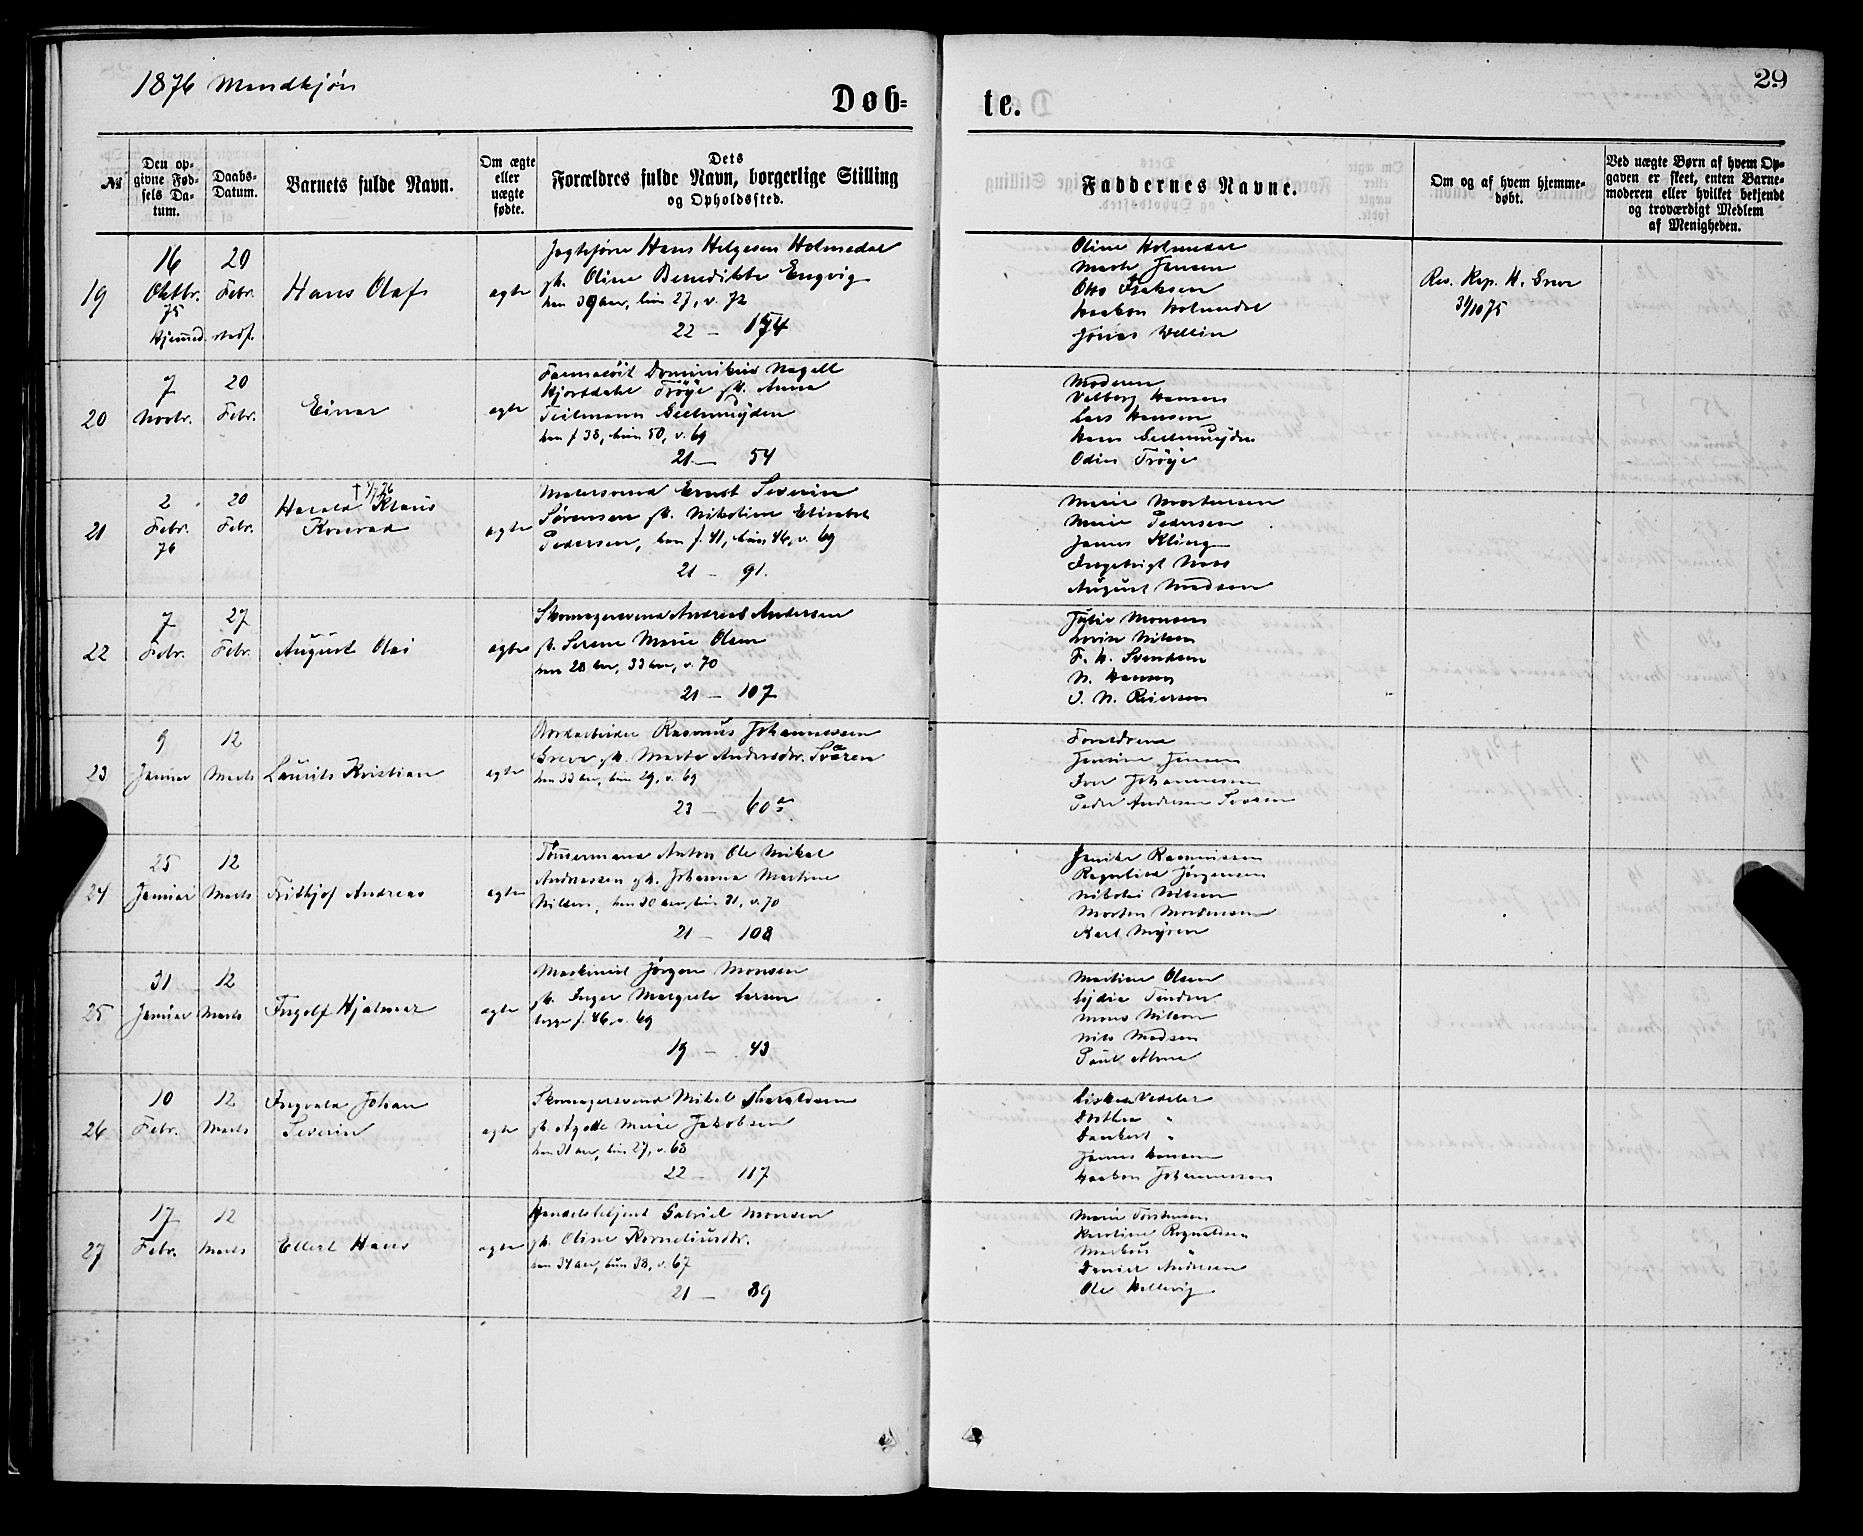 1876 Mandkjøn
29
Døb=
te.
№
Den op-
givne Fød-
sels Da-
tum.
Daabs-
Datum.
Barnets fulde Navn.
Om ægte
eller
uægte
fødte.
Dets
Forældres fulde Navn, borgerlige Stilling
og Opholdssted.
Faddernes Navne.
Om og af hvem hjemme-
døbt.
Ved uægte Børn af hvem Op-
gaven er skeet, enten Barne-
moderen eller hvilket bekjendt
og troværdigt Medlem
af Menigheden.
19
16
Oktbr.
75
Hjemmed. stadf.
20
Febr.
Hans Olaf
ægte
Hans Helgesen Holmedal
Oline Benedikte Engvig
han 39 aar, hun 27, v. 72
22 — 154
Oline Holmedal
Marte Jansen
Otto Isaksen
Haakon Holmedal
Jonas Vellin
Res. Kap. H. Greve
31/10 75
20
7
Novbr.
20
Febr.
Einar
ægte
Dominikus Nagell
Hjortdahl Trøye gh. Anna
Geelmuyden
han f. 38, hun 50, v. 69
21 — 54
Moderen
Valborg Hansen
Lars Hansen
Hans Geelmuyden
Odin Trøye
21
2
Febr.
76
20
Febr.
Harald Klaus
Konrad
ægte
Malersvend Ernst Severin
Sørensen gh. Nikoline Elisabet
Pedersen, han f. 41, hun 46, v. 69
21 — 91.
Marie Mortensen
Marie Pedersen
James Kling
Ingebrigt Moss
August Madsen
22
7
Febr.
27
Febr.
August Olai
ægte
Skomagersvend Andreas Andersen
gh. Serene Marie Olsen
han 28 aar, 33 aar, v. 70
21 — 107
Julie Monsen
Lovise Nilsen
F. H. Svendsen
N. Hansen
J. N. Reiersen
23
9
Januar
12
Marts
Laurits Kristian
ægte
Jordarbeider Rasmus Johannessen
Greve gh. Marta Andersdtr. Sværen
han 33 aar, hun 29, v. 69
23 — 60 a
Forældrene
Jensine Jensen
Iver Johannessen
Peder Andersen Sværen
24
25
Januar
12
Marts
Fritkjof Andreas
ægte
Tømmermand Anton Ole Mikal
Andreassen gh. Johanna Martine
Nilsen, han 30 aar, hun 31, v. 70
21 — 108
Janike Rasmussen
Ragnhild Jørgensen
Nikolai Nilsen
Morten Mortensen
Karl Myren
25
31
Januar
12
Marts
Ingolf Hjalmar
ægte
Maskinist Jørgen Monsen
gh. Inger Margrete Larsen
begge f. 46, v. 69
19 — 43
Martine Olsen
Lydia
Mons Nilsen
Nils Madsen
Paul
26
10
Febr.
12
Marts
Ingvald Johan
Severin
ægte
Skomagersvend Mikal Tharaldsen
gh. Agode Marie Jakobsen
han 31 aar, hun 27, v. 68
22 — 117
Vedeler
Dorthea "
Dankert "
James Hansen
Haakon Johannessen
27
17
Febr.
12
Marts
Ellert Hans
ægte
Handelsbetjent Gabriel Monsen
gh. Oline Korneliusdtr.
han 34 aar, hun 38, v. 67
21 — 89
Marie Torstensen
Karoline Ragnaldsen
Markus "
Daniel Andersen
Ole Hellevig